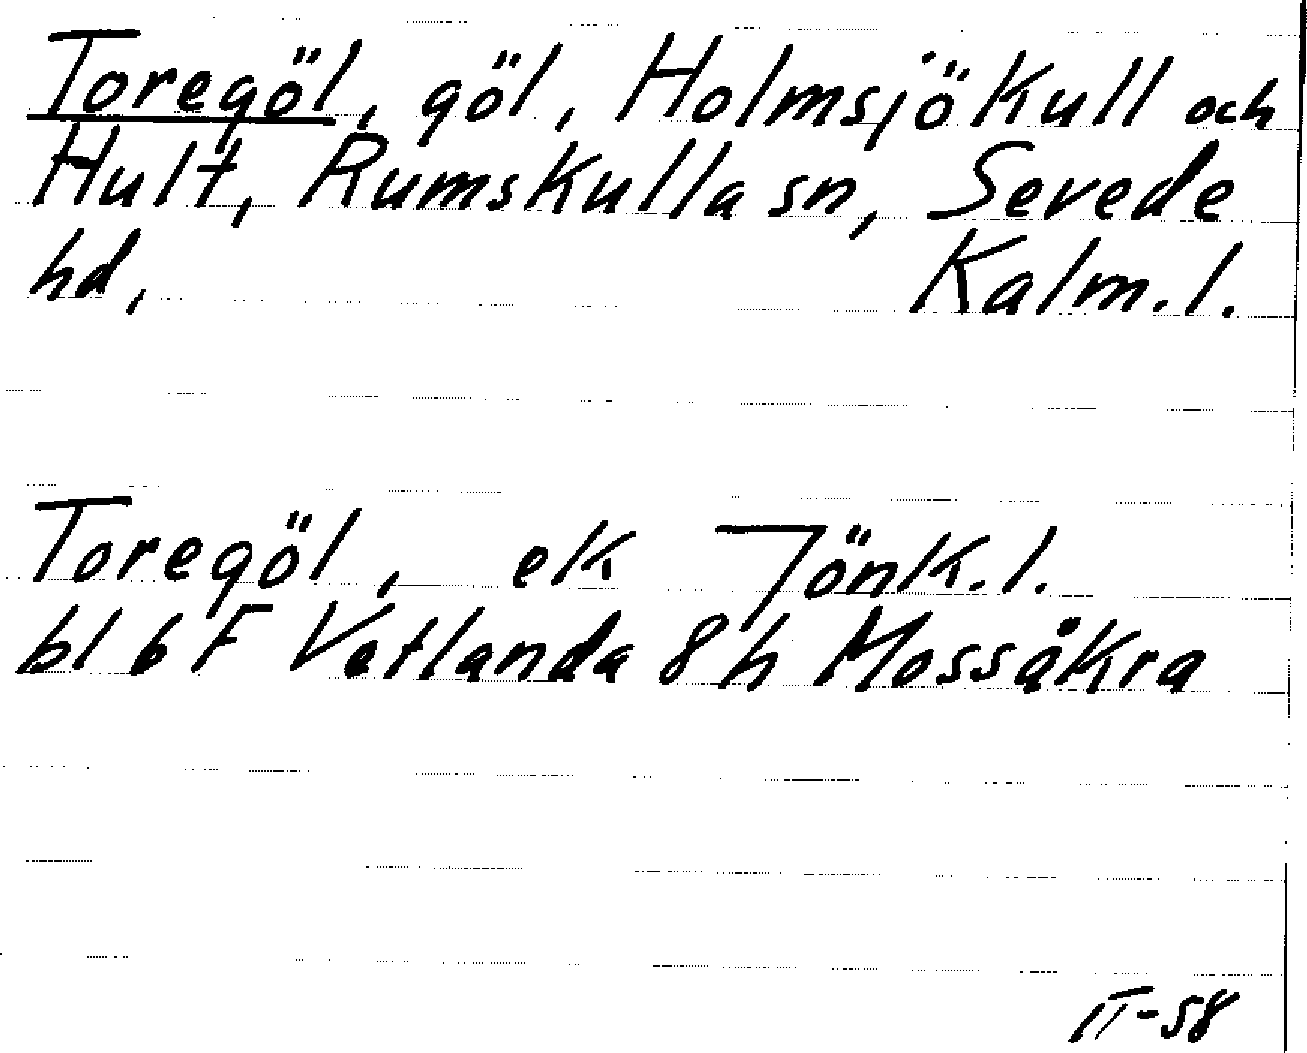 Toregöl, göl, Holmsjökull och
Hult, Rumskulla sn, Sevede
hd, Kalm. l.
Toregöl, ek Jönk. l.
bl 6 F Vetlanda 8 h Mossåkra
II-58